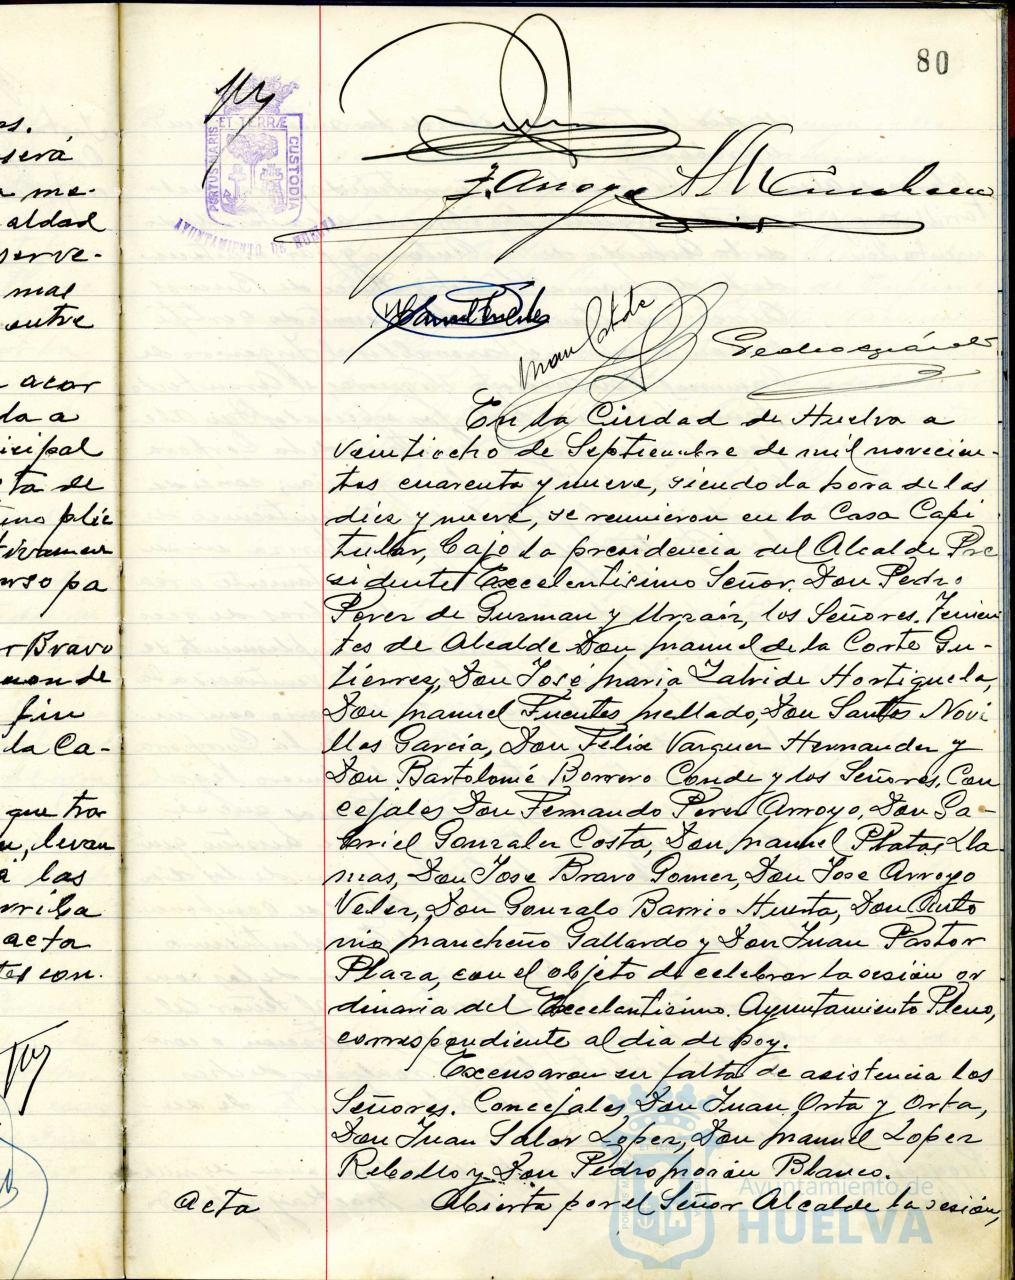 80
PORTUS MARIS ET TERRÆ CUSTODIA
AYUNTAMIENTO DE HUELVA
as.
será
a me-
aldad
serve-
mas
entre
acor
da a
icipal
cta de
erso pa
r Bravo
fin
la Ca-
que tra
levan
a las
rriba
acta
tes con.
J. Arroyo
Manuel Fuentes
En la Ciudad de Huelva a
veintiocho de Septiembre de mil novecien-
tos cuarenta y nueve, siendo la hora de las
diez y nueve, se reunieron en la Casa Capi
tular, bajo la presidencia del Alcalde Pre
sidente Excelentisimo Señor. Don Pedro
Perez de Guzman y Urzaiz, los Señores. Tenien
tes de Alcalde Don Manuel de la Corte Gu-
tierrez, Don José Maria Zalvide Hortiguela,
Don Manuel Fuentes Mellado, Don Santos Novi
llas Garcia, Don Felix Varguez Hernandez y
Don Bartolomé Borrero Conde y los Señores. Con
cejales Don Fernando Perez Arroyo, Don Ga-
briel Gonzalez Costa, Don Manuel Platas Lla
mas, Don Jose Bravo Gomez, Don Jose Arroyo
Velez, Don Gonzalo Barrio Huerta, Don Anto
nio Mancheño Gallardo y Don Juan Pastor
Plaza, con el objeto de celebrar la sesión or
dinaria del Excelentisimo. Ayuntamiento Pleno,
correspondiente al dia de hoy.
Excusaron su falta de asistencia los
Señores. Concejales, Don Juan Orta y Orta,
Don Juan Salas Lopez, Don Manuel Lopez
Rebollo y Don Pedro Morón Blanco.
acta
Abierta por el Señor Alcalde la sesión,
Ayuntamiento de
HUELVA